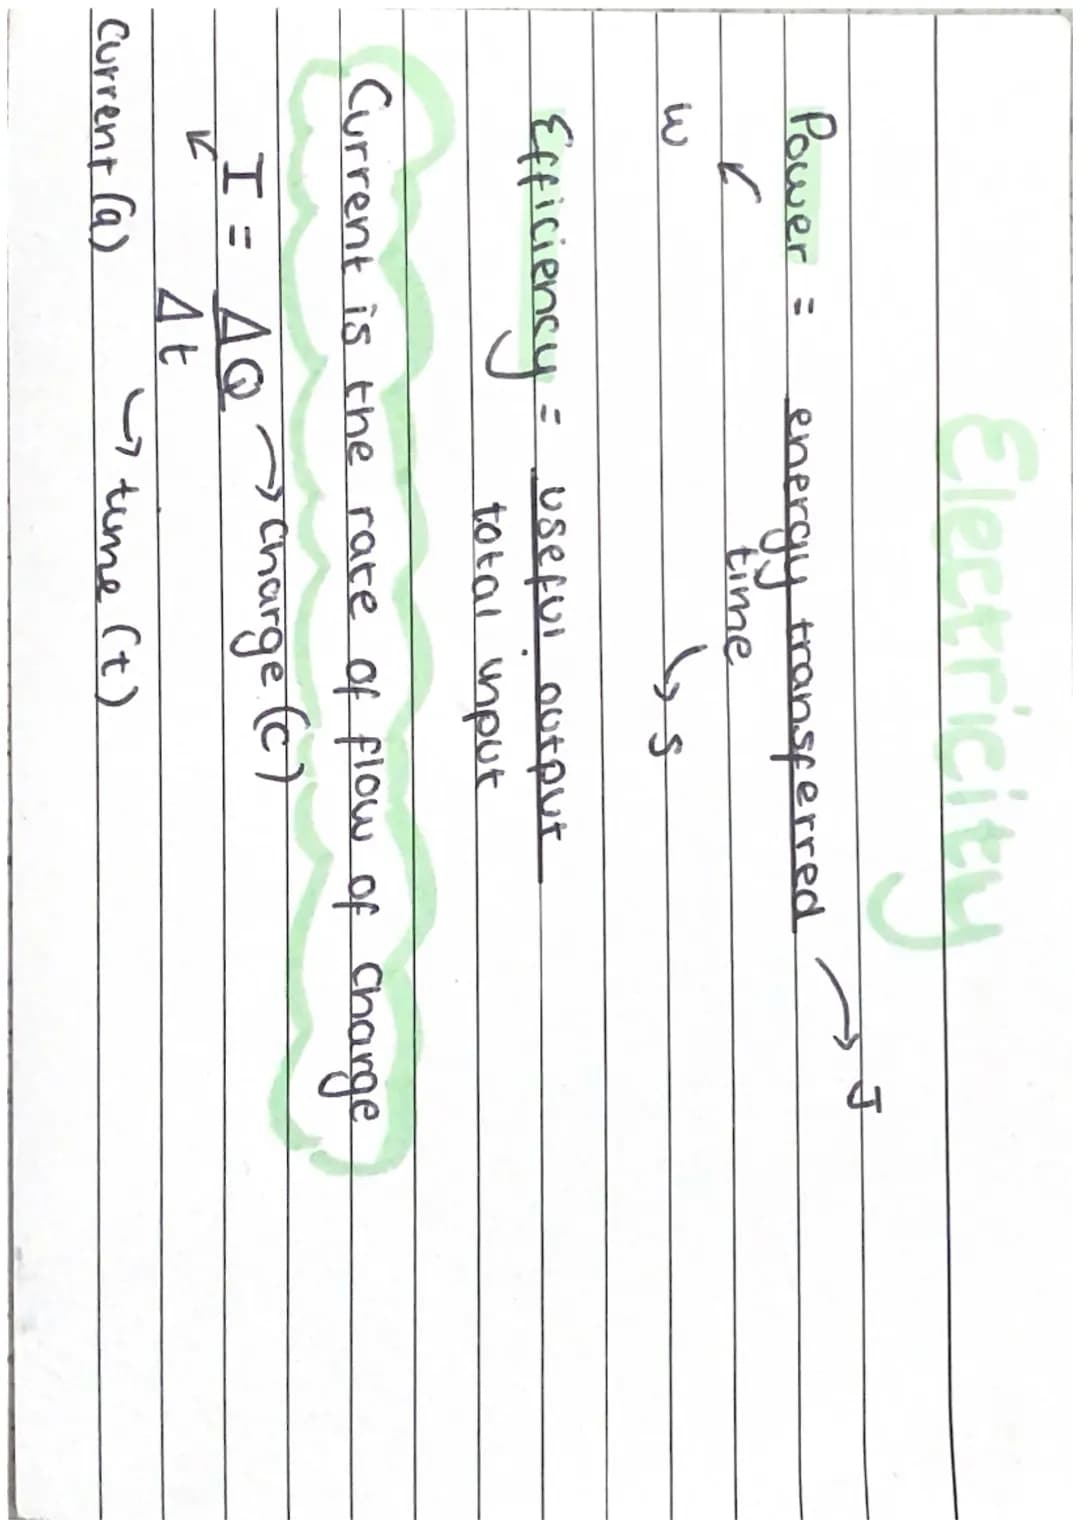 Electricity
Power = energy transferred → J
time
w → s
Efficiency = useful output
total input
Current is the rate of flow of charge
I = ΔQ → Charge (c)
Δt
Current (a) → time (t)